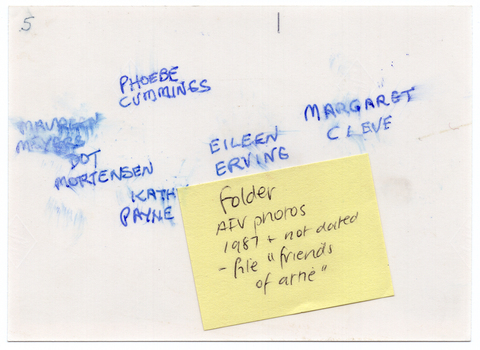 5
PHOEBE
CUMMINGS
MAUREEN
MEYERS
DOT
MORTENSEN
KATH
PAYNE
EILEEN
ERVING
MARGARET
CLEVE
Folder
photos
1987 + not dated
- file "friends
of